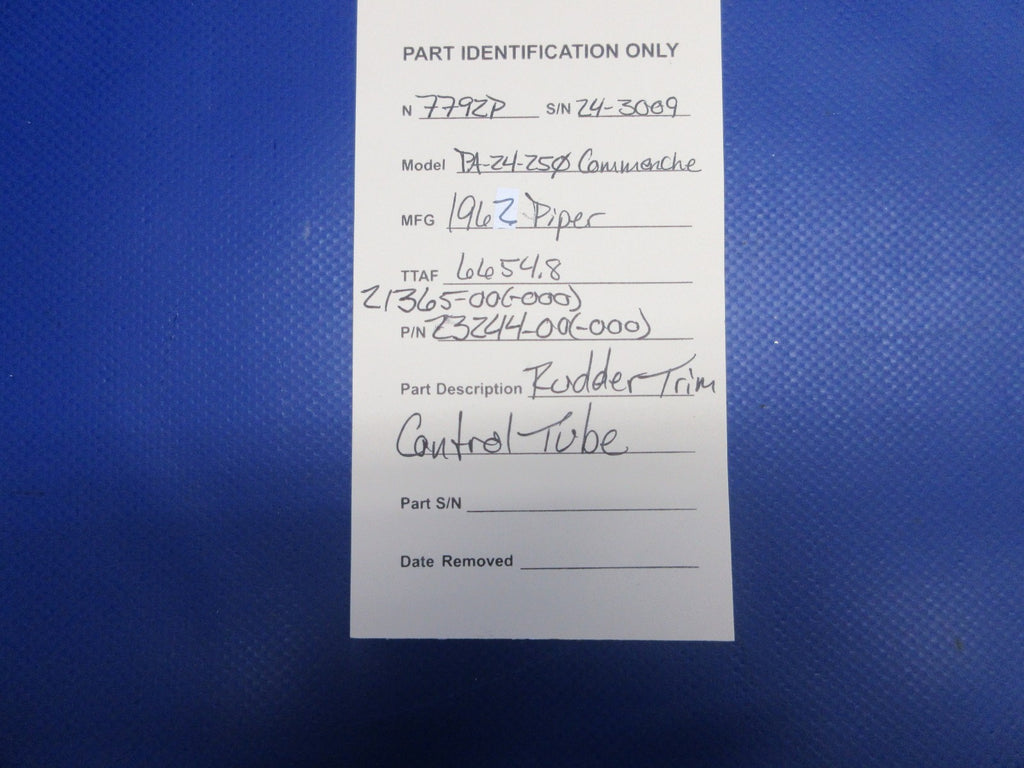 PART IDENTIFICATION ONLY
N 7792P S/N 24-3009
Model PA-24-250 Commanche
MFG 1962 Piper
TTAF 6654.8
21365-00(-000)
P/N 23244-00(-000)
Part Description Rudder Trim
Control Tube
Part S/N
Date Removed